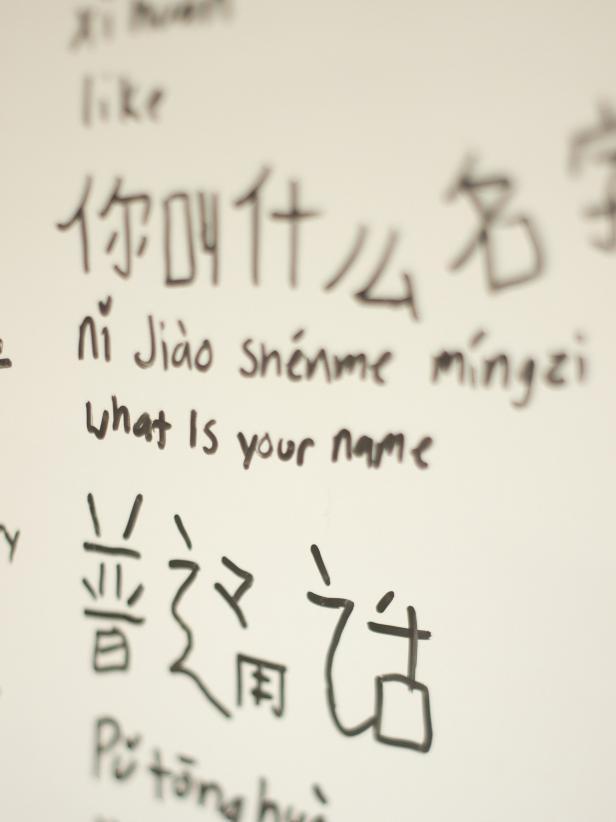 xi huan
like
你叫什么名字
nǐ Jiào shénme míngzi
what Is your name
普通话
Pǔtōnghuà